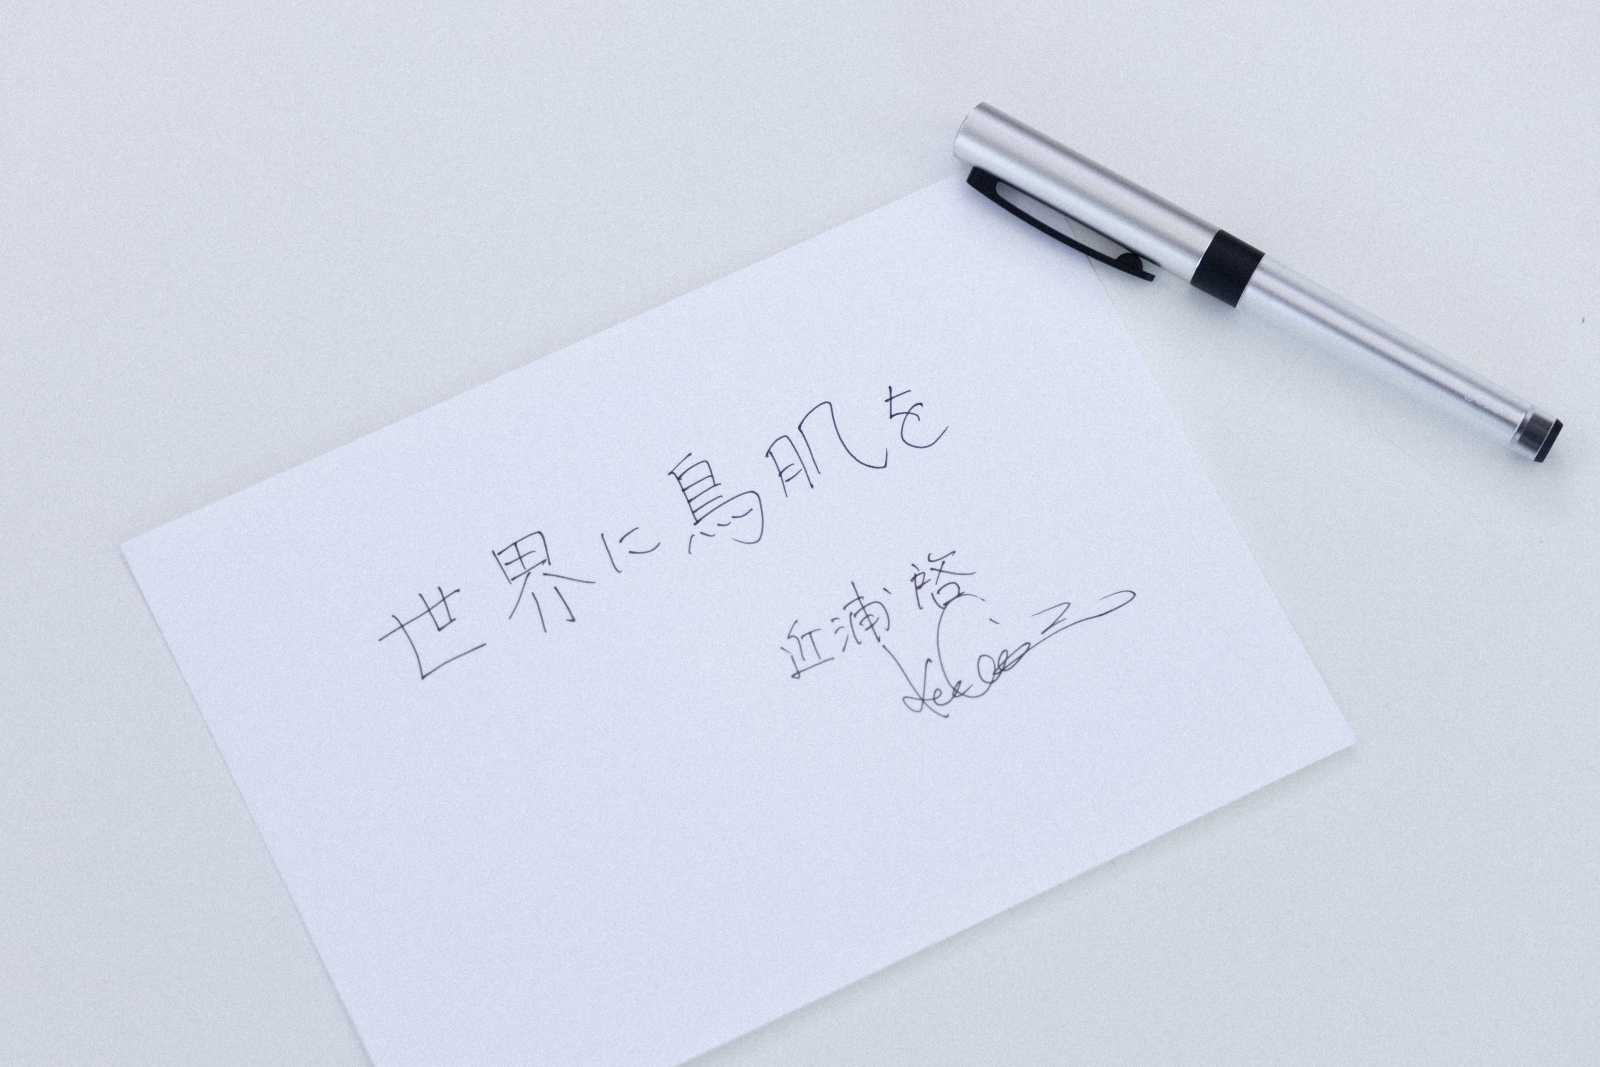 世界に鳥肌を
近浦啓